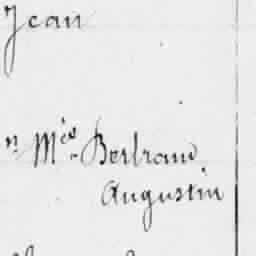 Jean
n Mis Bertrand
Augustin